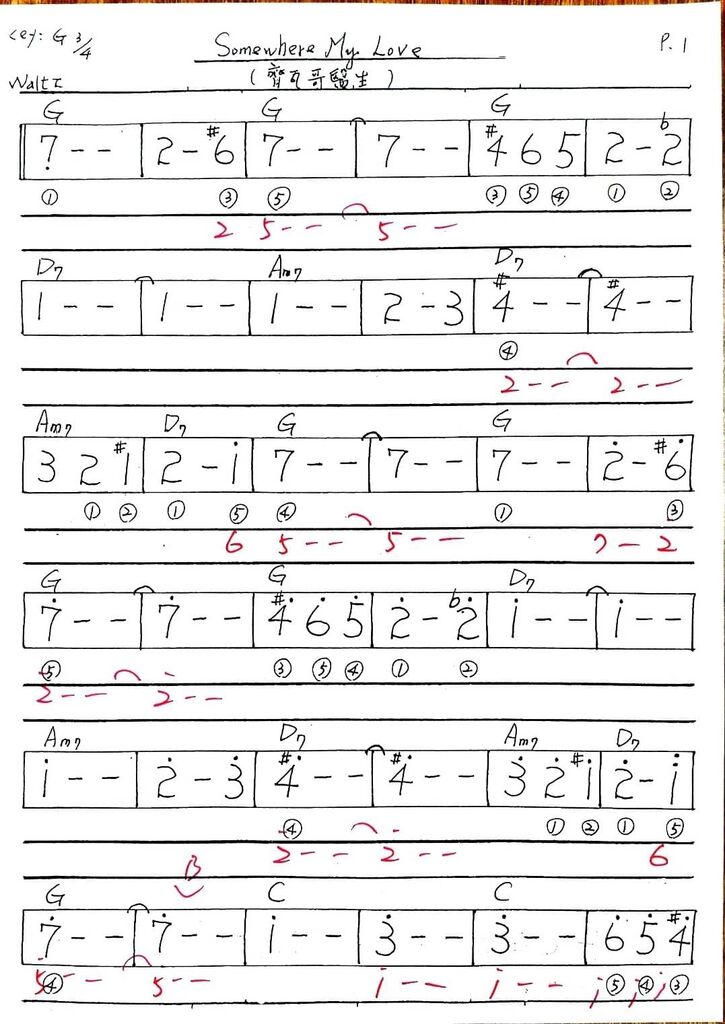 key: G 3/4 Somewhere My Love P. 1
Waltz (齊瓦哥醫生)
G G G
7̣ - - | 2 - #6 | 7 - - | 7 - - | #4 6 5 | 2 - b2
① ③ ⑤ ③ ⑤ ④ ① ②
2 5 - - 5 - -
D7 Am7 D7
1 - - | 1 - - | 1 - - | 2 - 3 | #4 - - | #4 - -
④
2 - - 2 - -
Am7 D7 G G
3 2 #1 | 2 - i | 7 - - | 7 - - | 7 - - | 2̇ - #6̇
① ② ① ⑤ ④ ① ③
6 5 - - 5 - - 7 - 2
G G D7
7̇ - - | 7̇ - - | #4̇ 6̇ 5̇ | 2̇ - b2̇ | i - - | i - -
⑤ ③ ⑤ ④ ① ②
2̇ - - 2̇ - -
Am7 D7 Am7 D7
i - - | 2̇ - 3̇ | #4̇ - - | #4̇ - - | 3̇ 2̇ #i | 2̇ - i
④ ① ② ① ⑤
2̇ - - 2̇ - - 6
B
G C C
7̇ - - | 7̇ - - | i - - | 3̇ - - | 3̇ - - | 6̇ 5̇ #4̇
④ ⑤ ④ ③
5 - - 5 - - i - - i - - i i i